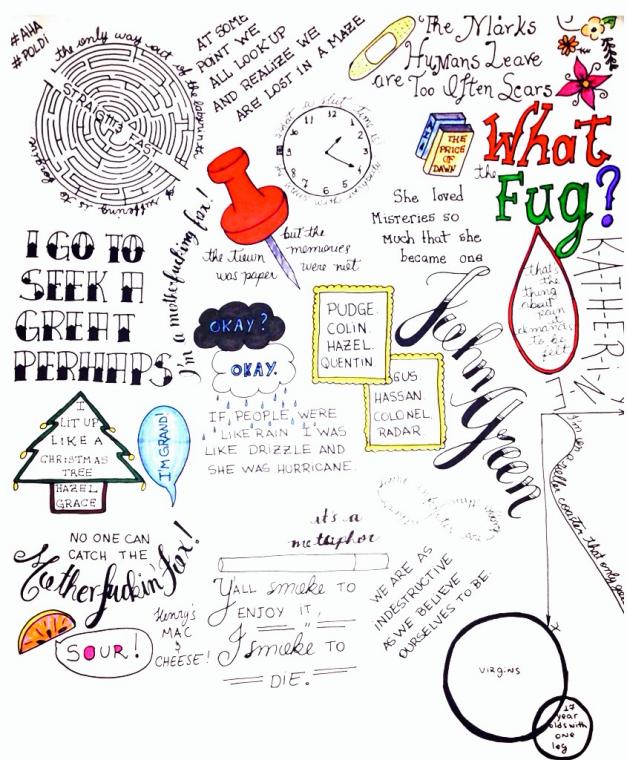 #AHA
#POLDI
the only way out of the labyrinth
of suffering is to forgive
STRAIGHT & FAST
AT SOME
POINT WE
ALL LOOK UP
AND REALIZE WE
ARE LOST IN A MAZE
The Marks
Humans Leave
are Too Often Scars
what a slut time is
12
11
1
10
2
9
3
8
4
7
5
6
THE PRICE OF DAWN
What
the
Fug?
She loved
Misteries so
Much that she
became one
I'm a motherfucking fox!
the town
was paper
but the
memories
were not
I GO TO
SEEK A
GREAT
PERHAPS
OKAY?
OKAY.
IF PEOPLE WERE
LIKE RAIN I WAS
LIKE DRIZZLE AND
SHE WAS HURRICANE.
PUDGE.
COLIN.
HAZEL.
QUENTIN
GUS.
HASSAN.
COLONEL.
RADAR.
John Green
that's
the
thing
about
pain
it
demands
to be
felt
K-A-T-H-E-R-I-N
E
I
LIT UP
LIKE A
CHRISTMAS
TREE
HAZEL
GRACE
I'M GRAND!
I'm on a roller coaster that only goes
NO ONE CAN
CATCH THE
Motherfuckin' fox!
it's a
metaphor
YALL smoke TO
ENJOY IT,
I smoke TO
DIE.
WE ARE AS
INDESTRUCTIVE
AS WE BELIEVE
OURSELVES TO BE.
SOUR!
Henry's
MAC
&
CHEESE!
VIRGINS
17
year
olds with
one
leg